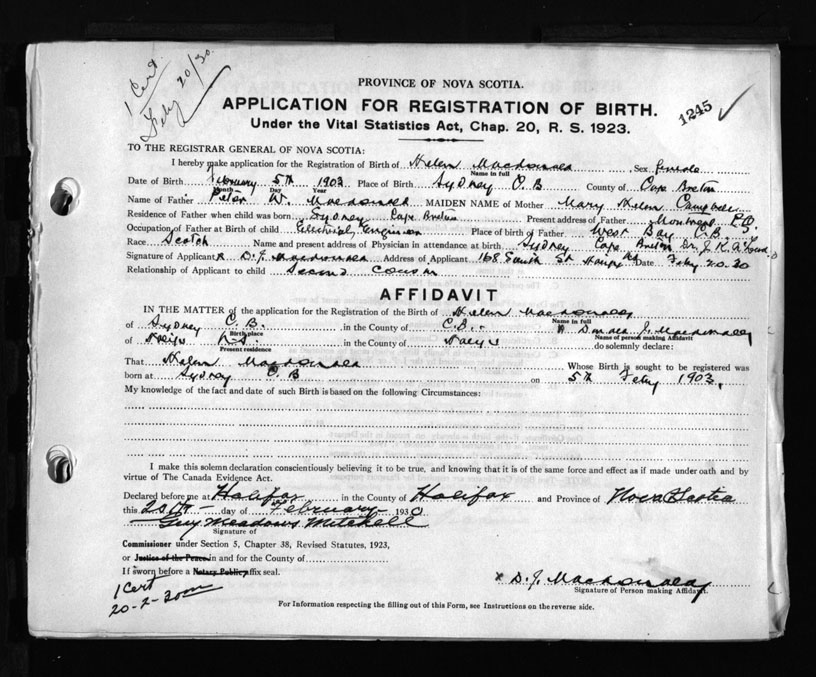 1 Cert.
Feby 20/30
PROVINCE OF NOVA SCOTIA.
APPLICATION FOR REGISTRATION OF BIRTH.
1245
Under the Vital Statistics Act, Chap. 20, R. S. 1923.
TO THE REGISTRAR GENERAL OF NOVA SCOTIA:
I hereby make application for the Registration of Birth of Helen Macdonald Sex female
Name in full
Date of Birth February 5th 1903 Place of Birth Sydney C. B County of Cape Breton
Month Day Year
Name of Father Peter W. Macdonald MAIDEN NAME of Mother Mary Helen Campbell
Residence of Father when child was born Sydney Cape Breton Present address of Father Montreal P.Q.
Occupation of Father at Birth of Child Electrical Engineer Place of birth of Father West Bay C.B.
Race Scotch Name and present address of Physician in attendance at birth Sydney Cape Breton Dr. J. K.
Signature of Applicant x D. J. Macdonald Address of Applicant 168 South St Date Feby 20.30
Relationship of Applicant to child Second Cousin
AFFIDAVIT
IN THE MATTER of the application for the Registration of the Birth of Helen Macdonald
Name in full
of Sydney C. B. in the County of C.B. Donald J. Macdonald
Birth place Name of person making Affidavit
of N.S. in the County of do solemnly declare:
Present residence
That Helen Macdonald Whose Birth is sought to be registered was
born at Sydney C B on 5th Feby 1903.
My knowledge of the fact and date of such Birth is based on the following Circumstances:
I make this solemn declaration conscientiously believing it to be true, and knowing that it is of the same force and effect as if made under oath and by
virtue of The Canada Evidence Act.
Declared before me at Halifax in the County of Halifax and Province of Nova Scotia
this 20th day of February 1930
Guy Meadows Mitchell
Signature of
Commissioner under Section 5, Chapter 38, Revised Statutes, 1923,
or Justice of the Peace in and for the County of
If sworn before a Notary Public affix seal.
x D. J. Macdonald
Signature of Person making Affidavit.
1 Cert
20-2-30
For Information respecting the filling out of this Form, see Instructions on the reverse side.